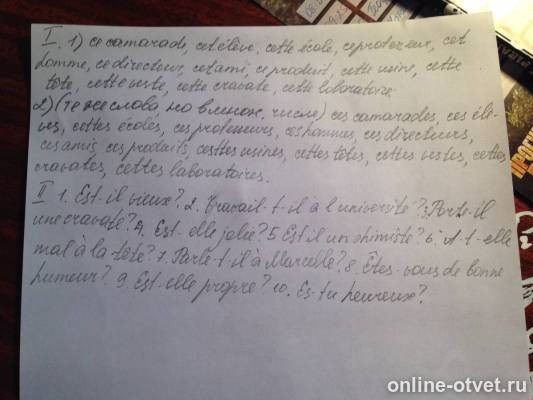 I. 1) ce camarade, cet élève, cette école, ce professeur, cet
homme, ce directeur, cet ami, ce produit, cette usine, cette
tête, cette veste, cette cravate, cette laboratoire.
2) (те же слова, но в множ. числе) ces camarades, ces élè-
ves, cettes écoles, ces professeurs, ces hommes, ces directeurs,
ces amis, ces produits, cesttes usines, cettes têtes, cettes vestes, cettes
cravates, cettes laboratoires.
II 1. Est-il vieux? 2. Travail-t-il à l'université? 3. Porte-il
une cravate? 4. Est-elle jolie? 5 Est il un shimiste? 6. A-t-elle
mal à la tête? 7. Parle-t-il à Marcelle? 8. Êtes-vous de bonne
humeur? 9. Est-elle propre? 10. Es-tu heureux?
online-otvet.ru